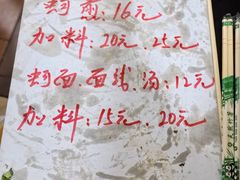 蚵煎：16元
加料：20元.25元
蚵面.面线.汤：12元
加料：15元.20元